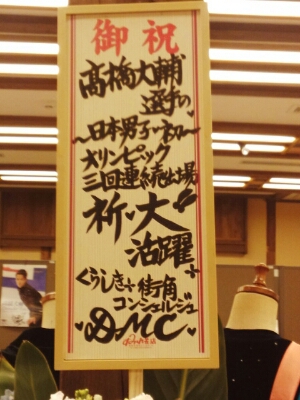 御祝
高橋大輔
選手の
〜日本男子・初〜
オリンピック
三回連続出場
祈・大
活躍
くらしき街角
コンシェルジュ
DMC